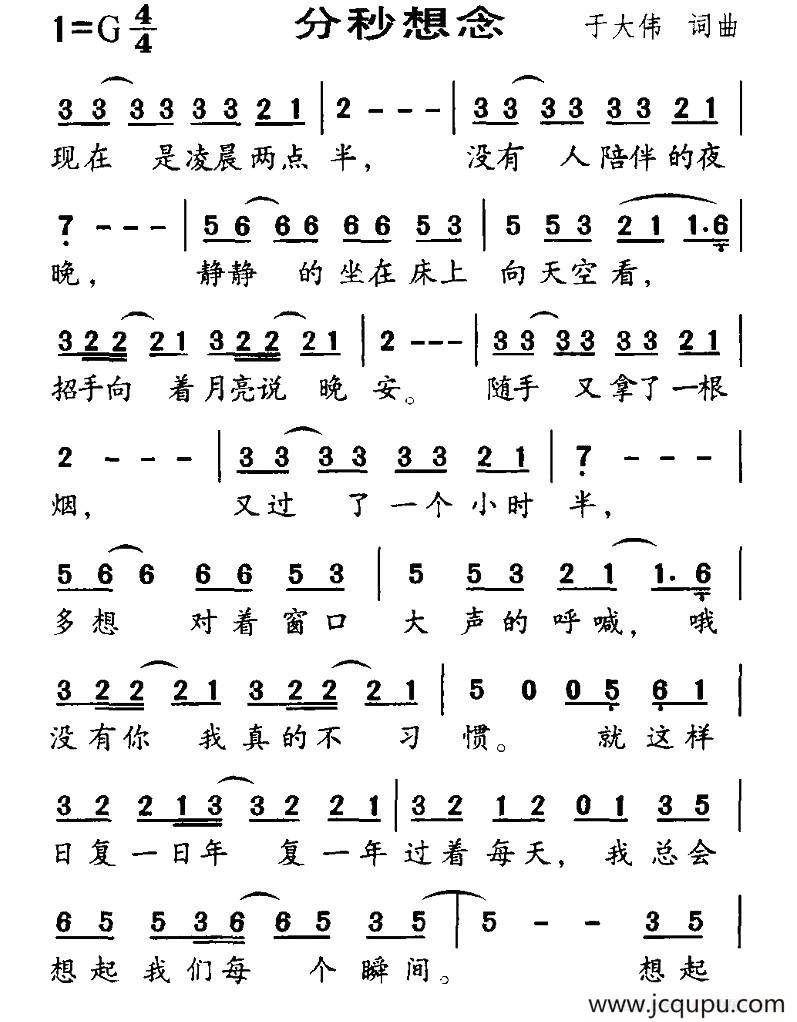 1=G 4/4 分秒想念 于大伟 词曲
3 3 3 3 3 3 2 1 | 2 - - - | 3 3 3 3 3 3 2 1 |
现在 是凌晨两点 半， 没有 人陪伴的夜
7 - - - | 5 6 6 6 6 6 5 3 | 5 5 3 2 1 1·6 |
晚， 静静 的坐在床上 向天空看，
3 2 2 2 1 3 2 2 2 1 | 2 - - - | 3 3 3 3 3 3 2 1 |
招手向 着月亮说 晚 安。 随手 又拿了一根
2 - - - | 3 3 3 3 3 3 2 1 | 7 - - - |
烟， 又过 了一个小时 半，
5 6 6 6 6 5 3 | 5 5 3 2 1 1· 6 |
多想 对着窗口 大声的呼喊， 哦
3 2 2 2 1 3 2 2 2 1 | 5 0 0 5 6 1 |
没有你 我真的不 习 惯。 就这样
3 2 2 1 3 3 2 2 1 | 3 2 1 2 0 1 3 5 |
日复一日年 复一年过着每天，我总会
6 5 5 3 6 6 5 3 5 | 5 - - 3 5 |
想起我们每 个瞬间。 想起
www.jcqupu.com